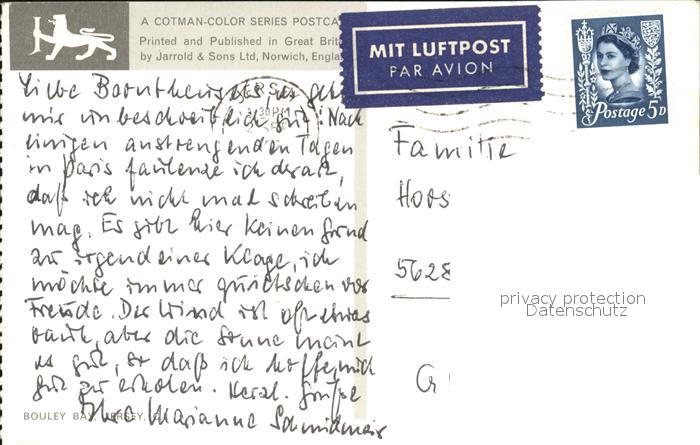 A COTMAN-COLOR SERIES POSTCA
Printed and Published in Great Brit
by Jarrold & Sons Ltd, Norwich, Engla
MIT LUFTPOST
PAR AVION
Postage 5D
30PM
Liebe es geht
mir unbeschreiblich gut! Nach
einigen anstrengenden Tagen
in Paris faulenze ich derart,
daß ich nicht mal schreiben
mag. Es gibt hier keinen Grund
zu irgendeiner Klage, ich
möchte immer quietschen vor
Freude. Der Wind ist oft etwas
rauh, aber die Sonne meint
es gut, so daß ich hoffe, mich
gut zu erholen. Herzl. Grüße
Ihre Marianne Schmidmeir
BOULEY BAY, JERSEY, C.I.
Familie
Hors
5628
G
privacy protection
Datenschutz